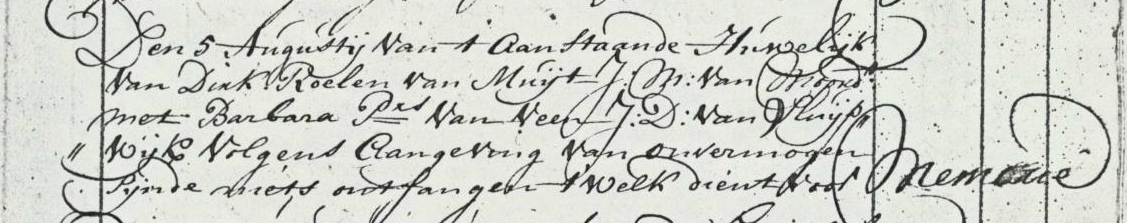 Den 5 Augustij van t aanstaande Huwelijk
van Dirk Roelen van Muijt J: M: van Noord
met Barbara Prs van Veen J: D: van Sluijp„
„ wijk volgens Aangeving van onvermogen
sijnde niets ontfangen t welk dient voor Memorie